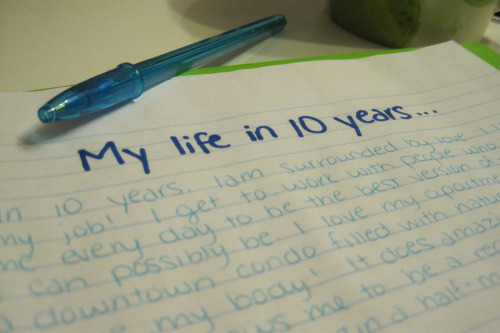 My life in 10 years...
In 10 years, I am surrounded by love. I
my job! I get to work with people who
me every day to be the best version of
I can possibly be. I love my apartment
downtown condo filled with natu
my body! It does amaz
me to be a re
in a half-m